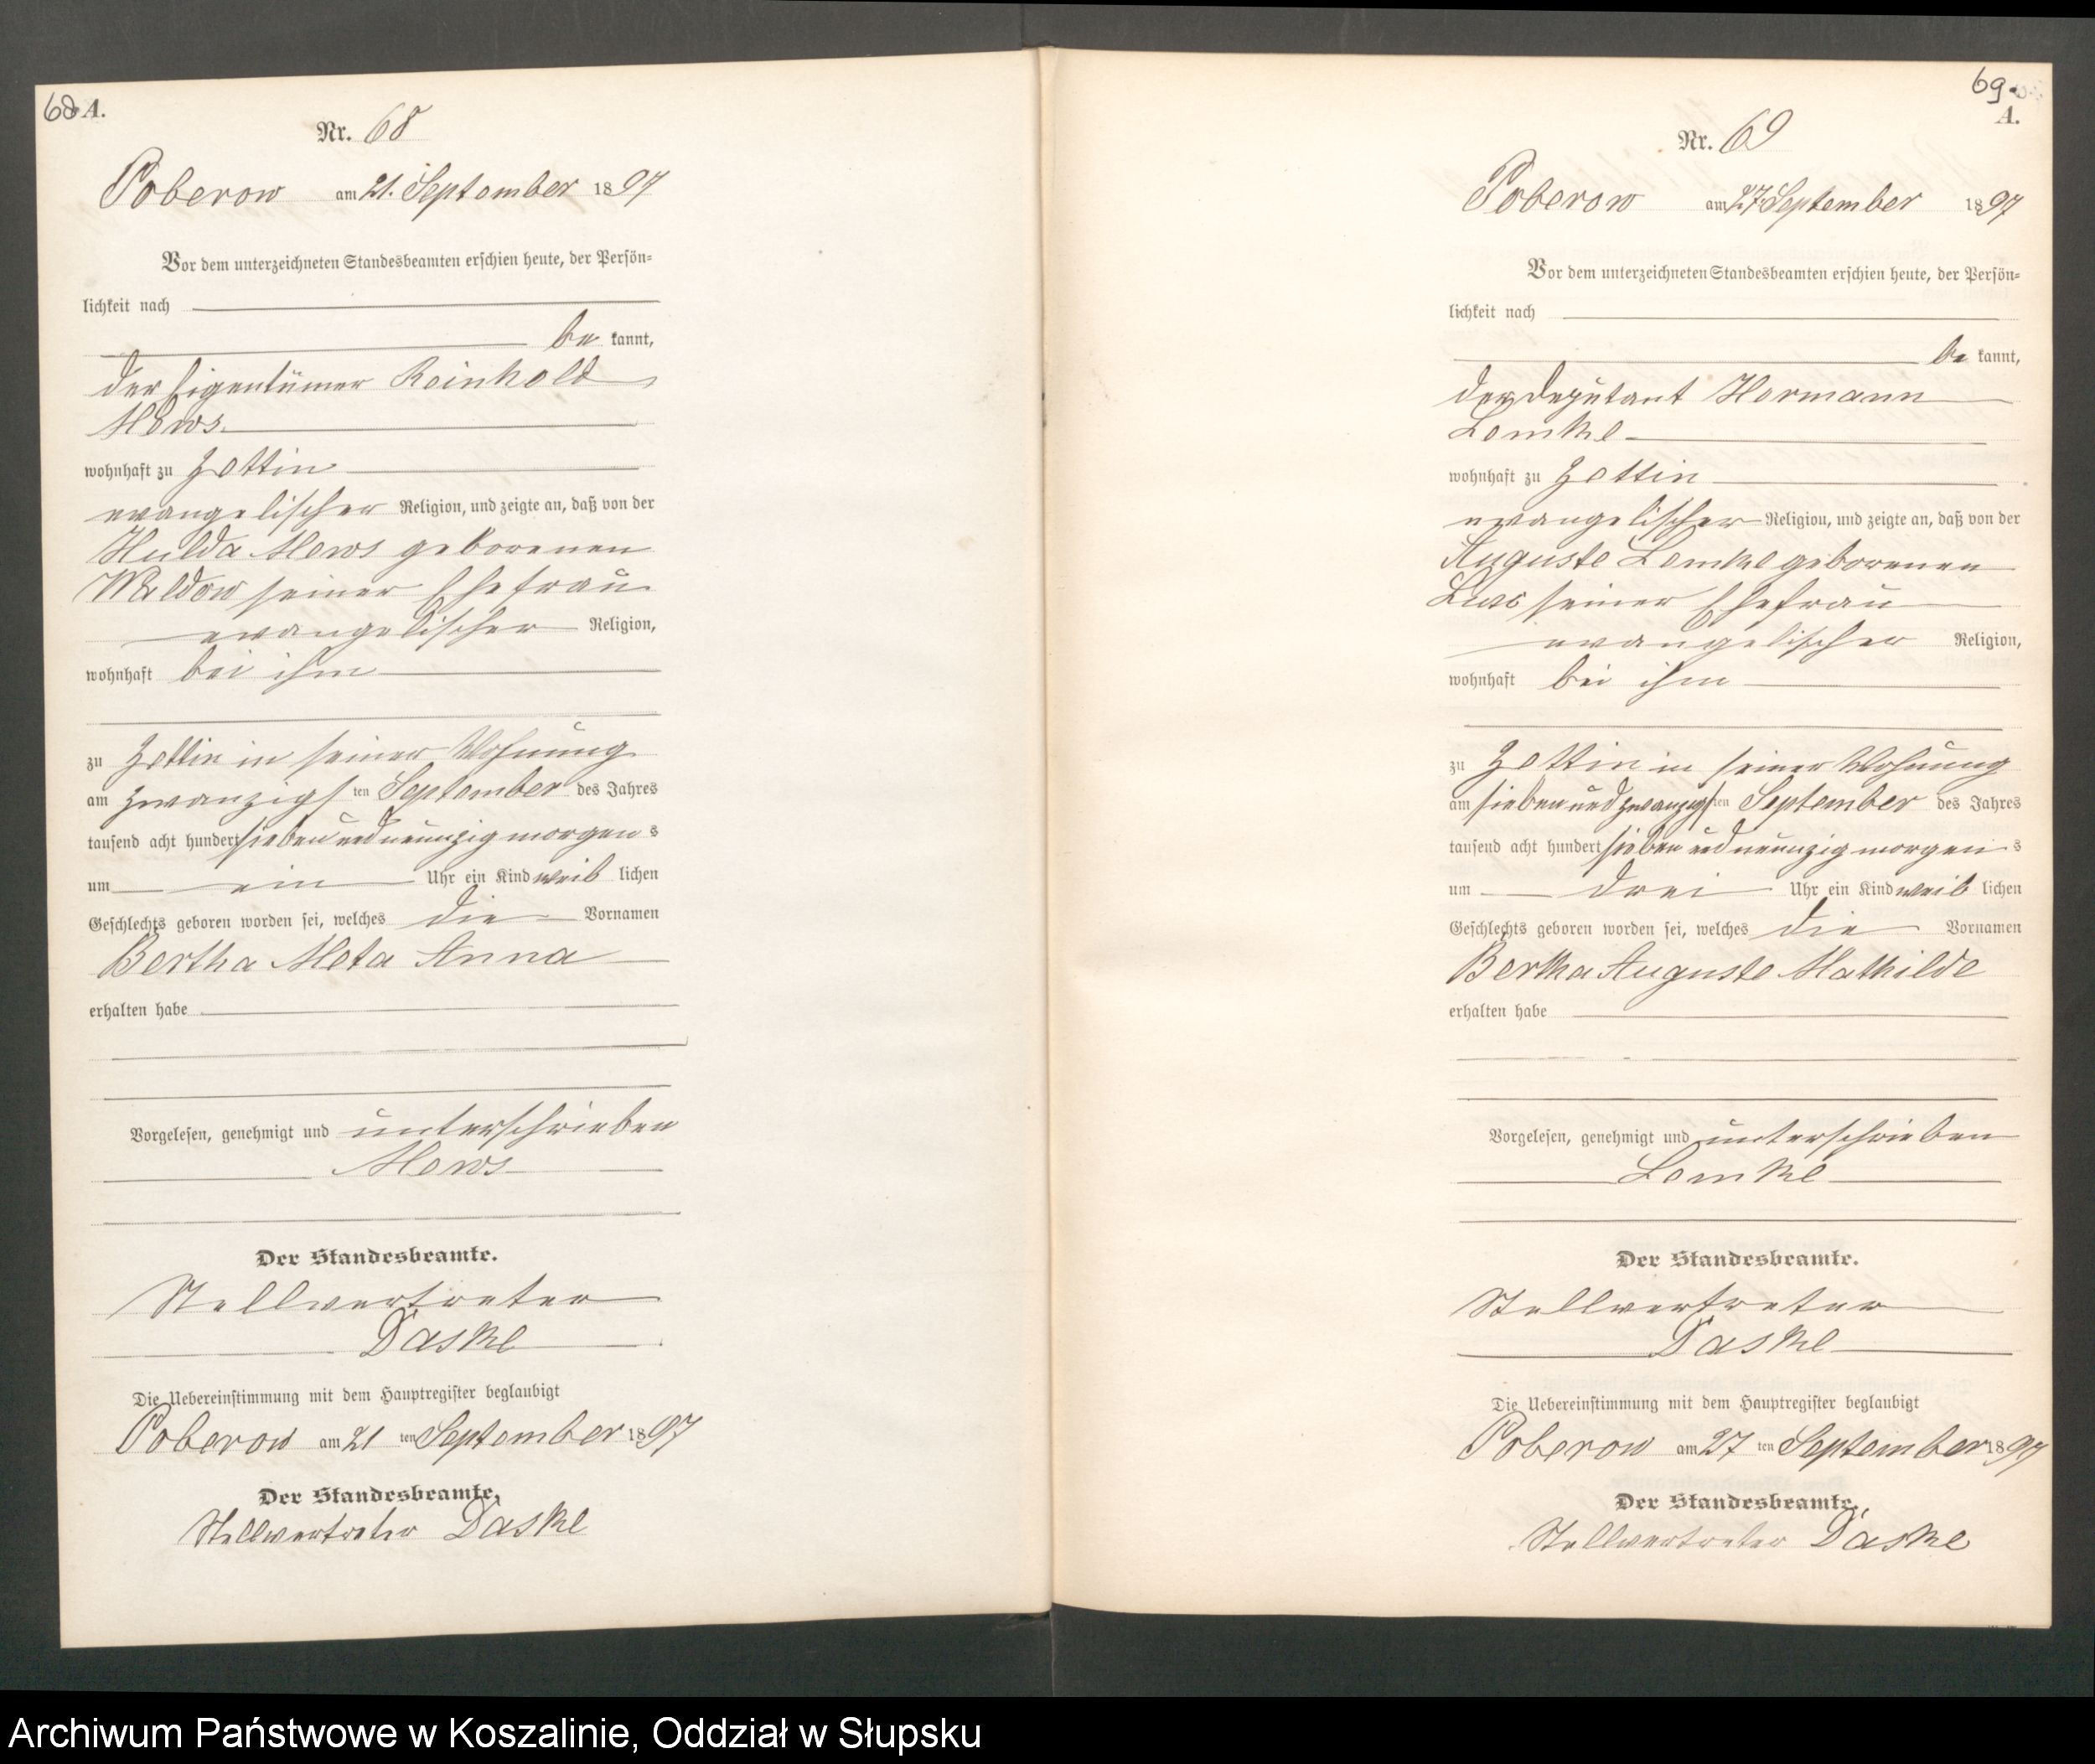 68 A.
Nr. 68
Poberow am 21. September 1897
Vor dem unterzeichneten Standesbeamten erschien heute, der Persön=
lichkeit nach
be kannt,
der Eigentümer Reinhold
Mews
wohnhaft zu Zettin
evangelischer Religion, und zeigte an, daß von der
Hulda Mews geborenen
Waldow seiner Ehefrau
evangelischer Religion,
wohnhaft bei ihm
zu Zettin in seiner Wohnung
am zwanzigs ten September des Jahres
tausend acht hundert sieben und neunzig morgens
um ein Uhr ein Kind weib lichen
Geschlechts geboren worden sei, welches die Vornamen
Bertha Meta Anna
erhalten habe
Vorgelesen, genehmigt und unterschrieben
Mews
Der Standesbeamte.
Stellvertreter
Daske
Die Uebereinstimmung mit dem Hauptregister beglaubigt
Poberow am 21 ten September 1897
Der Standesbeamte.
Stellvertreter Daske
69.
A.
Nr. 69
Poberow am 27. September 1897
Vor dem unterzeichneten Standesbeamten erschien heute, der Persön=
lichkeit nach
be kannt,
der Deputant Hermann
Lemke
wohnhaft zu Zettin
evangelischer Religion, und zeigte an, daß von der
Auguste Lemke geborenen
seiner Ehefrau
evangelischer Religion,
wohnhaft bei ihm
zu Zettin in seiner Wohnung
am sieben und zwanzigs ten September des Jahres
tausend acht hundert sieben und neunzig morgens
um drei Uhr ein Kind weib lichen
Geschlechts geboren worden sei, welches die Vornamen
Bertha Auguste Mathilde
erhalten habe
Vorgelesen, genehmigt und unterschrieben
Lemke
Der Standesbeamte.
Stellvertreter
Daske
Die Uebereinstimmung mit dem Hauptregister beglaubigt
Poberow am 27 ten September 1897
Der Standesbeamte.
Stellvertreter Daske
Archiwum Państwowe w Koszalinie, Oddział w Słupsku